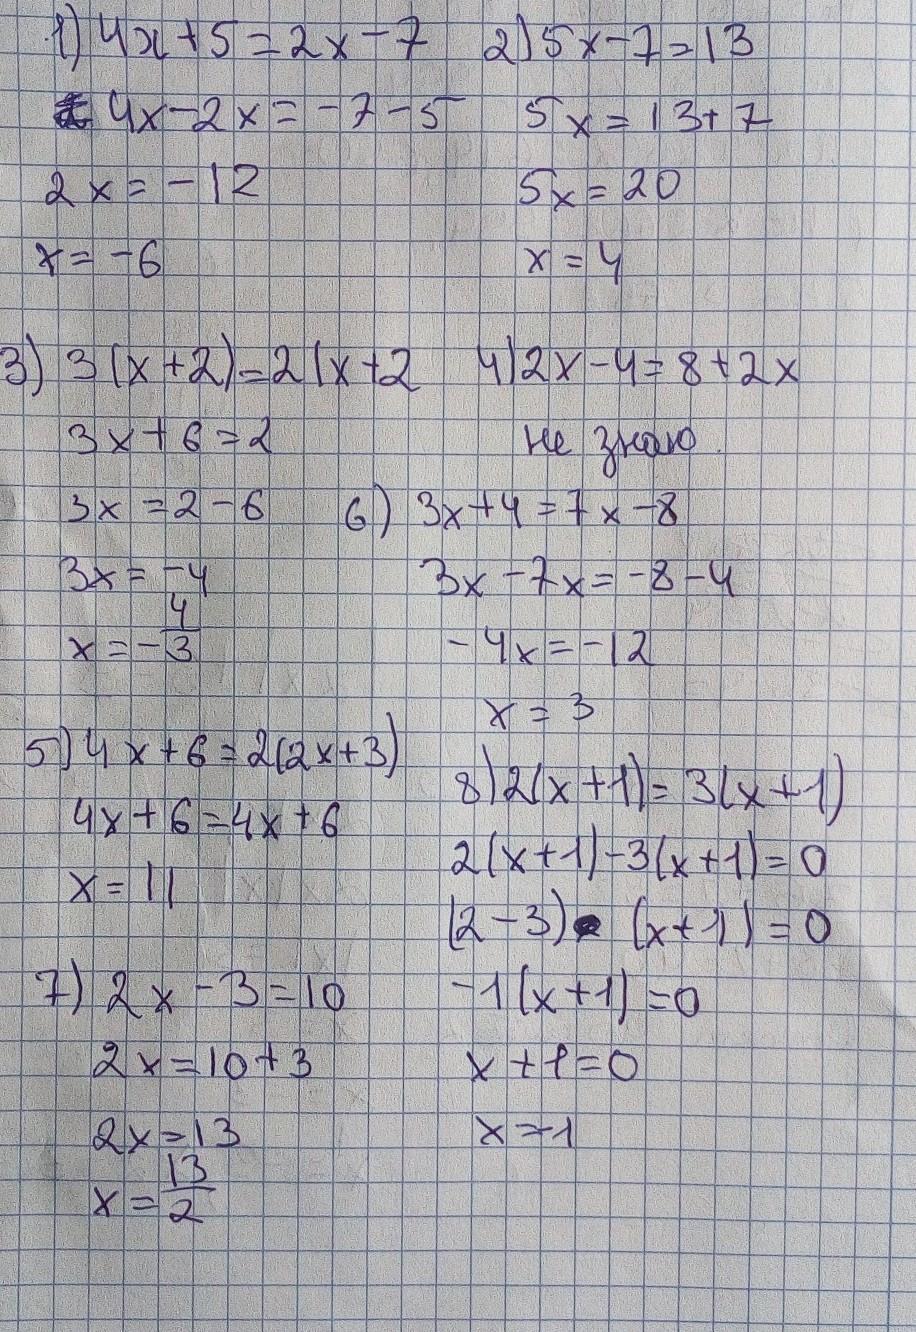 1) 4x+5=2x-7
4x-2x=-7-5
2x=-12
x=-6
2) 5x-7=13
5x=13+7
5x=20
x=4
3) 3(x+2)=2(x+2
3x+6=2
3x=2-6
3x=-4
x=-4/3
4) 2x-4=8+2x
не знаю.
6) 3x+4=7x-8
3x-7x=-8-4
-4x=-12
x=3
5) 4x+6=2(2x+3)
4x+6=4x+6
x=11
8) 2(x+1)=3(x+1)
2(x+1)-3(x+1)=0
(2-3)·(x+1)=0
-1(x+1)=0
x+1=0
x=-1
7) 2x-3=10
2x=10+3
2x=13
x=13/2